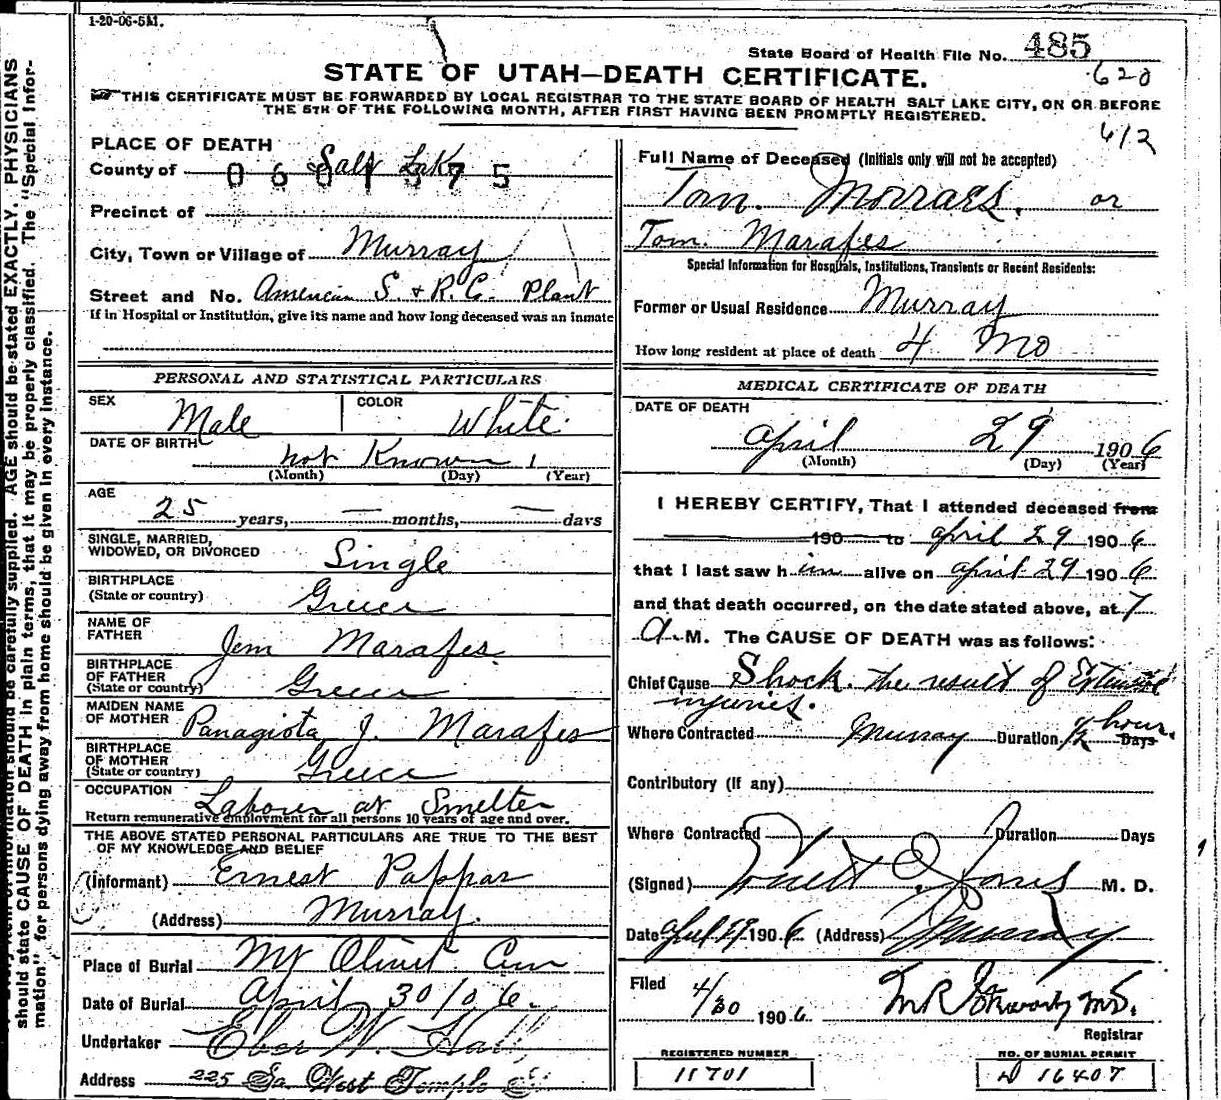 1-20-06-5M.
State Board of Health File No. 485
620
STATE OF UTAH—DEATH CERTIFICATE.
THIS CERTIFICATE MUST BE FORWARDED BY LOCAL REGISTRAR TO THE STATE BOARD OF HEALTH SALT LAKE CITY, ON OR BEFORE
THE 5TH OF THE FOLLOWING MONTH, AFTER FIRST HAVING BEEN PROMPTLY REGISTERED.
412
PLACE OF DEATH
County of Salt Lake
0601575
Precinct of
City, Town or Village of Murray
Street and No. American S. & R. Co. Plant
If in Hospital or Institution, give its name and how long deceased was an inmate
PERSONAL AND STATISTICAL PARTICULARS
SEX Male COLOR White
DATE OF BIRTH not Known 1
(Month) (Day) (Year)
AGE
25 years, — months, — days
SINGLE, MARRIED,
WIDOWED, OR DIVORCED Single
BIRTHPLACE
(State or country) Greece
NAME OF
FATHER Jem Marafes
BIRTHPLACE
OF FATHER
(State or country) Greece
MAIDEN NAME
OF MOTHER Panagiota J. Marafes
BIRTHPLACE
OF MOTHER
(State or country) Greece
OCCUPATION Laborer at Smelter
Return remunerative employment for all persons 10 years of age and over.
THE ABOVE STATED PERSONAL PARTICULARS ARE TRUE TO THE BEST
OF MY KNOWLEDGE AND BELIEF
(Informant) Ernest Pappas
(Address) Murray.
Place of Burial Mt Olivet Cem
Date of Burial April 30/06.
Undertaker Eber W. Hall
Address 225 So West Temple St
Full Name of Deceased (Initials only will not be accepted)
Tom. Morraes. or
Tom. Marafes
Special Information for Hospitals, Institutions, Transients or Recent Residents:
Former or Usual Residence Murray
How long resident at place of death 4 Mo
MEDICAL CERTIFICATE OF DEATH
DATE OF DEATH
April 29 1906
(Month) (Day) (Year)
I HEREBY CERTIFY, That I attended deceased from
190 to April 29 1906
that I last saw him alive on April 29 1906
and that death occurred, on the date stated above, at 7
A. M. The CAUSE OF DEATH was as follows:
Chief Cause Shock. the result of Extensive
injuries.
Where Contracted Murray Duration 1/2 hour. Days
Contributory (If any)
Where Contracted Duration Days
(Signed) Jones M. D.
Date April 29 1906 (Address) Murray
Filed 4/30 1906
Registrar
REGISTERED NUMBER
11701
NO. OF BURIAL PERMIT
16407
should state CAUSE OF DEATH in plain terms, that it may be properly classified. The "Special Infor-
mation" for persons dying away from home should be given in every instance.
information should be carefully supplied. AGE should be stated EXACTLY. PHYSICIANS